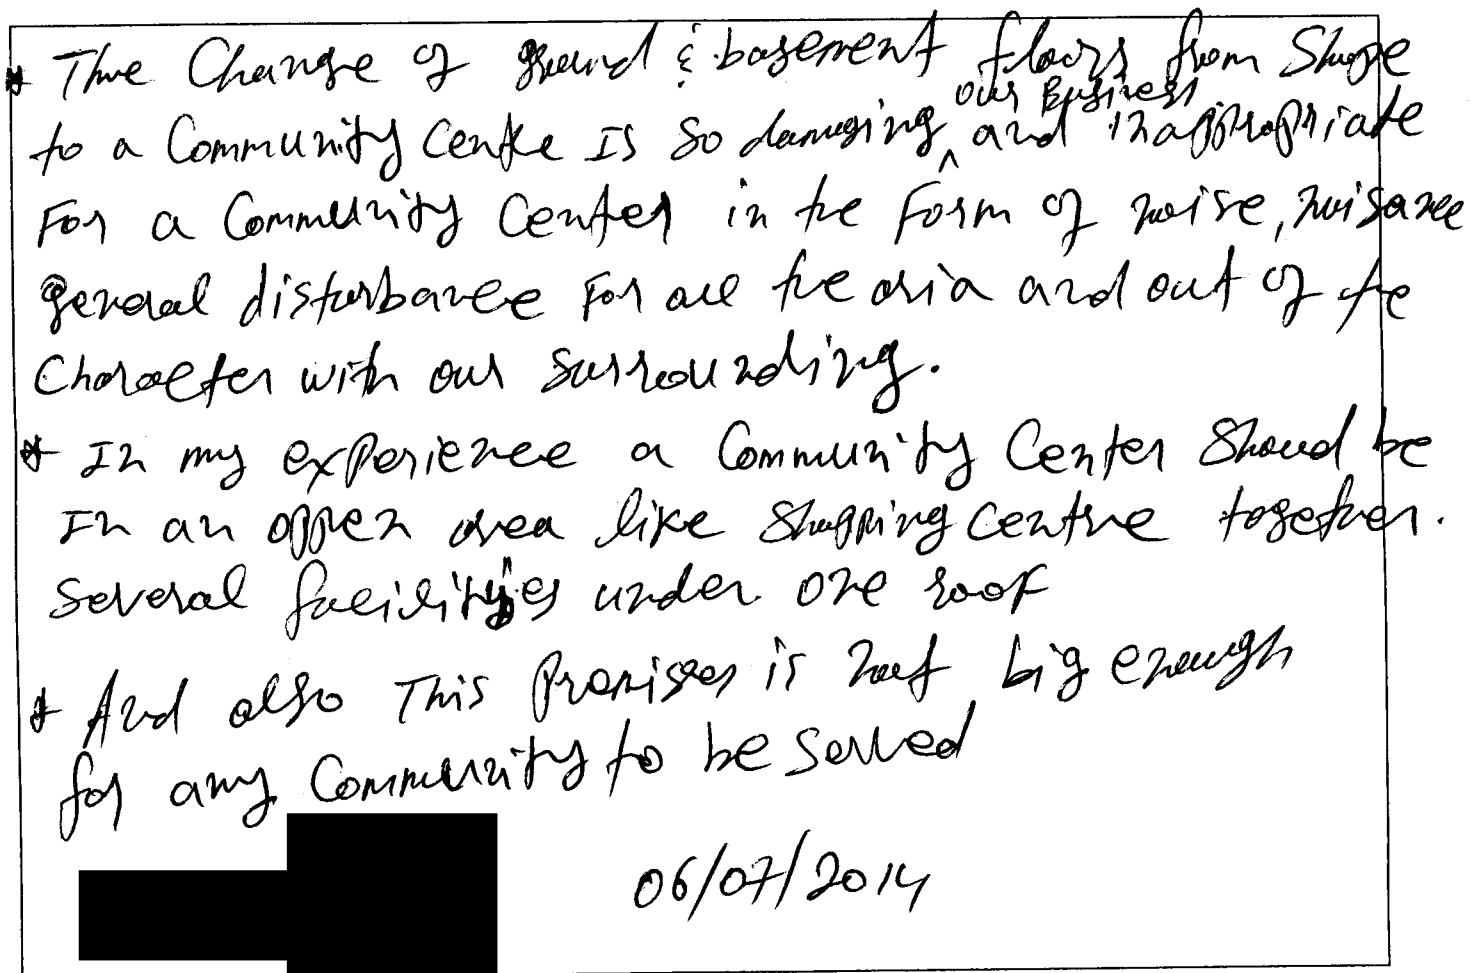 * The Change of ground & basement floors from Shope
to a Community Centre Is so damaging our Business and inappropriate
For a Community Center in the Form of noise, nuisance
general disturbance For all the aria and out of the
Character with our surrounding.
* In my experience a Community Center Should be
In an oppen area like Shopping Centre together.
Several facilities under one roof
* And also This Premises is not big enough
for any Community to be served
06/07/2014